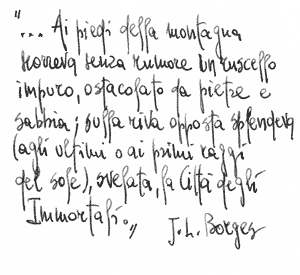 "... Ai piedi della montagna
correva senza rumore un ruscello
impuro, ostacolato da pietre e
sabbia; sulla riva opposta splendeva
(agli ultimi o ai primi raggi
del sole), svelata, la Città degli
Immortali."
J. L. Borges